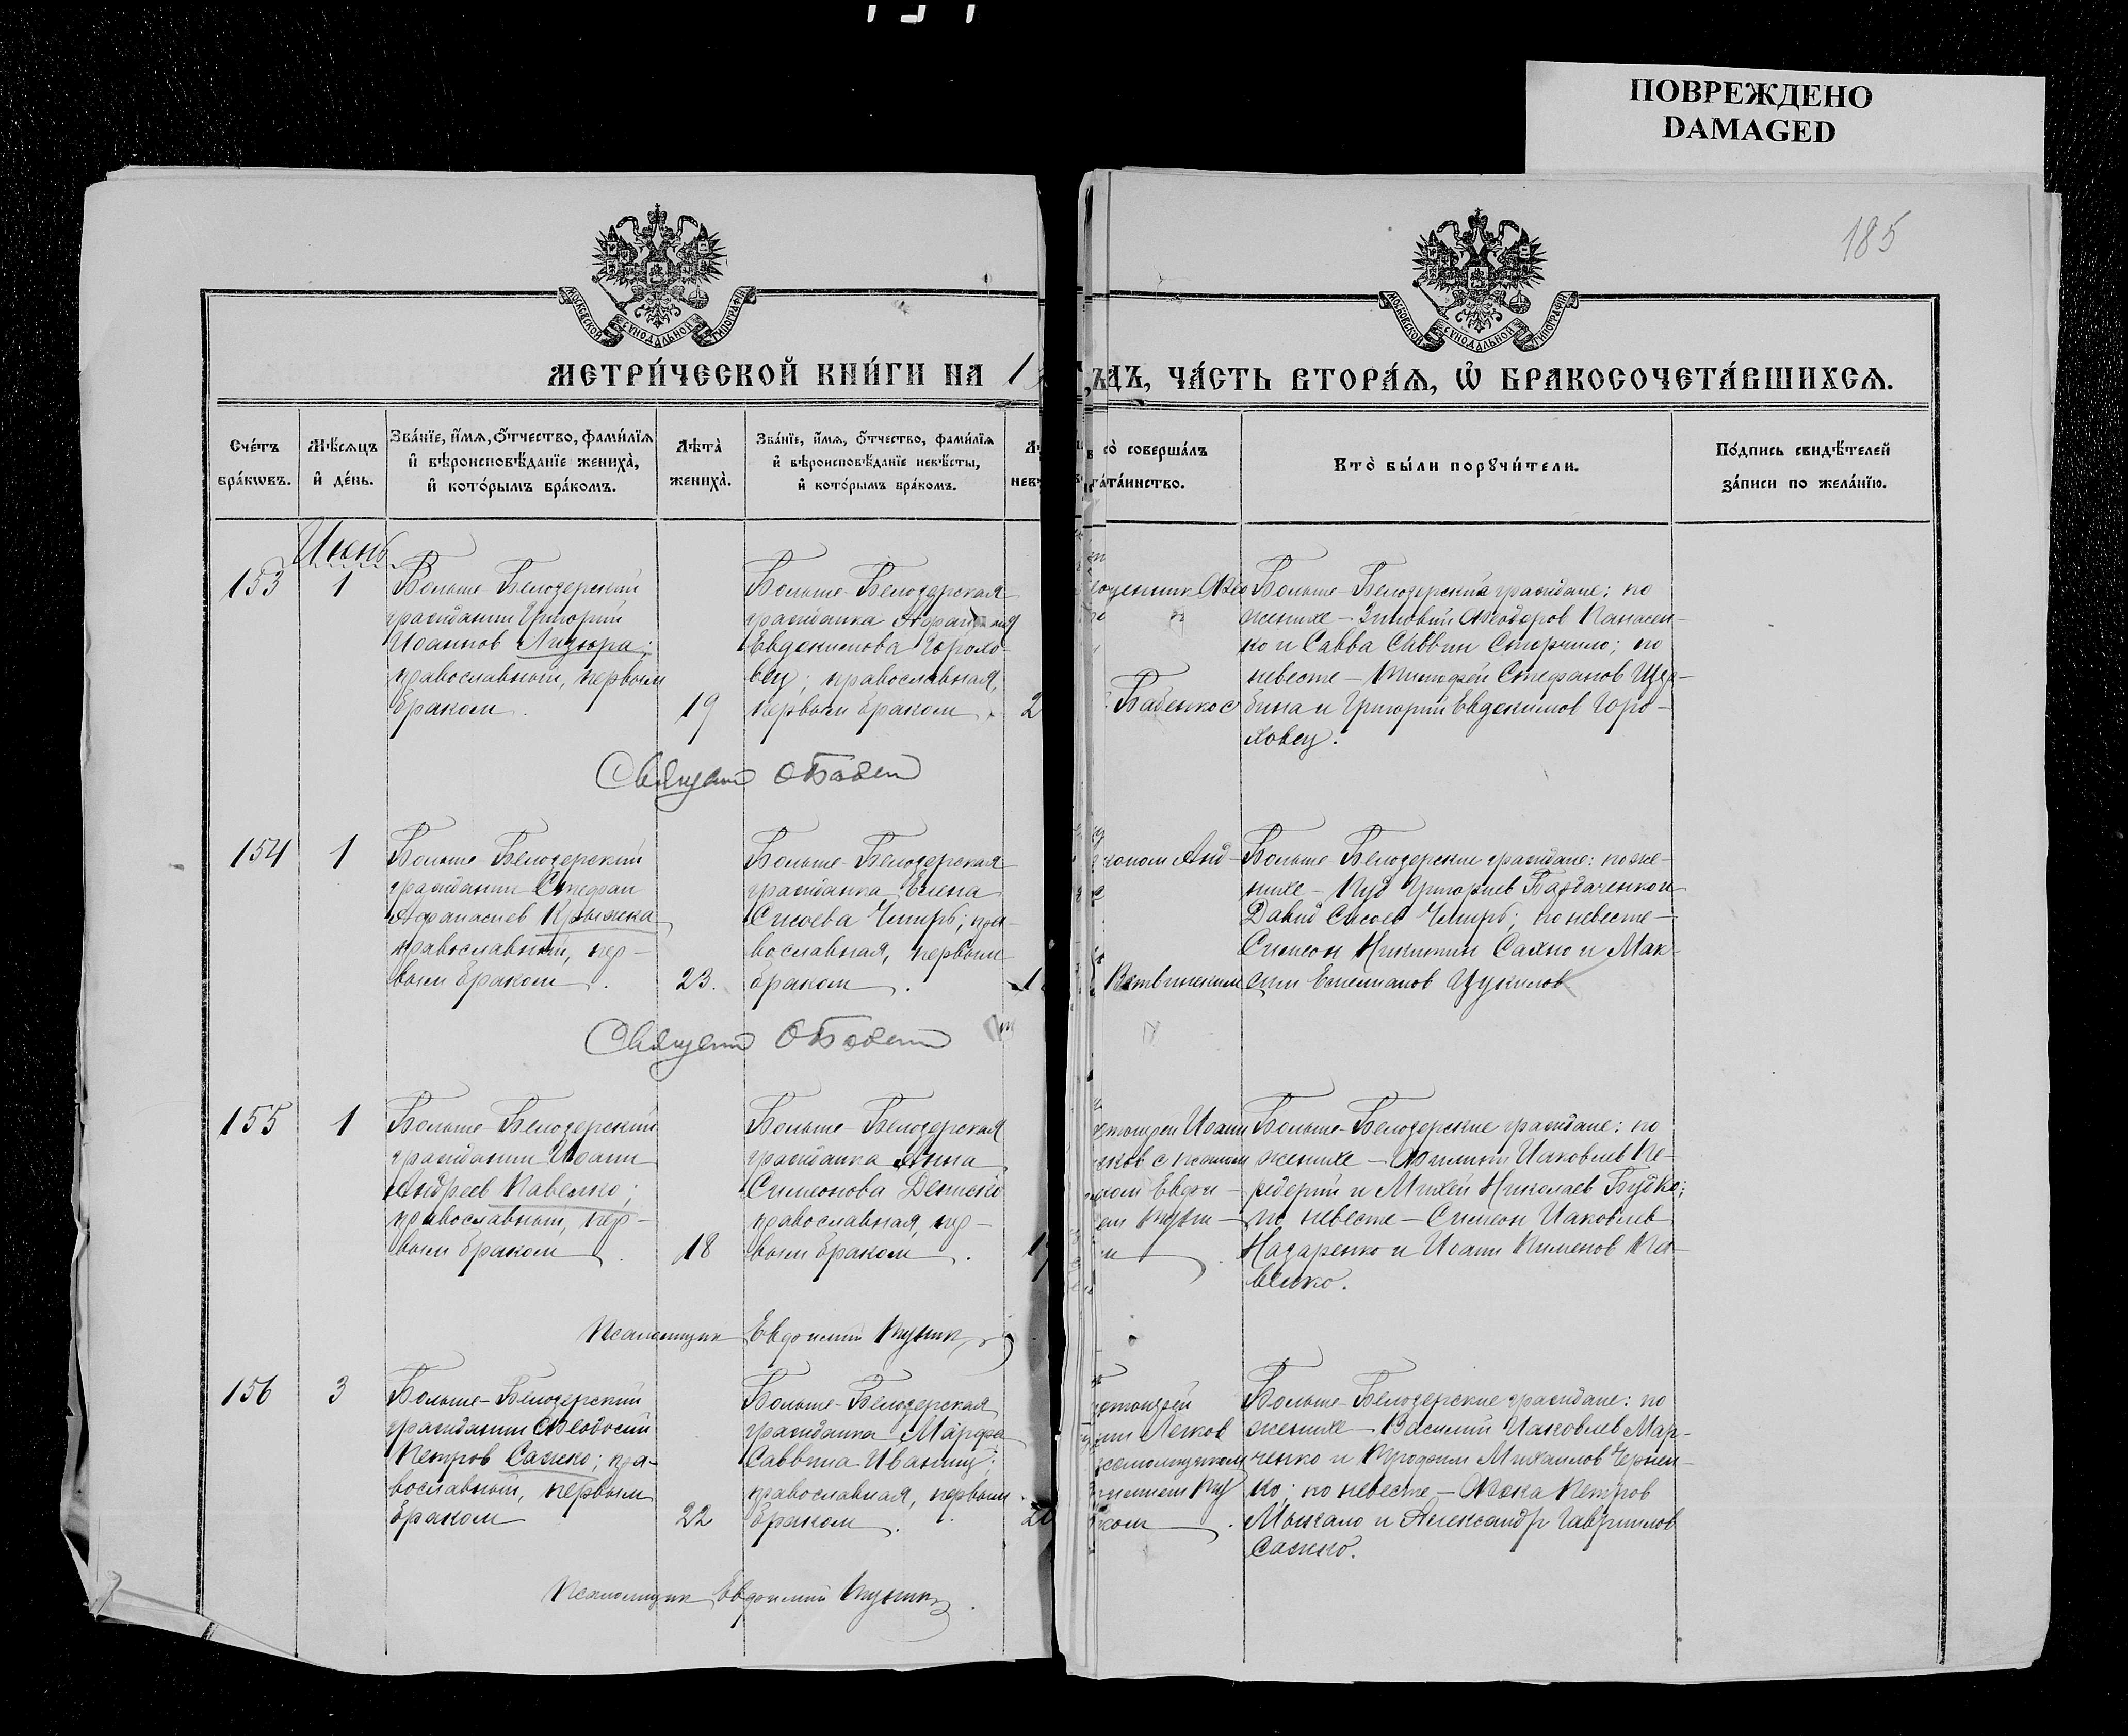 ПОВРЕЖДЕНО
DAMAGED
185
МОСКОВСКОЙ СѴНОДАЛЬНОЙ ТИПОГРАФІИ
МОСКОВСКОЙ СѴНОДАЛЬНОЙ ТИПОГРАФІИ
МЕТРИ́ЧЕСКОЙ КНИ́ГИ НА 1
ДЪ, ЧА́СТЬ ВТОРА́Ѧ, Ѡ҆ БРАКОСОЧЕТА́ВШИХСѦ.
Сче́тъ
бра́кѡвъ.
Мѣ́сѧцъ
и҆ де́нь.
Зва́нїе, и҆́мѧ, ѻ҆́тчество, фами́лїѧ
и҆ вѣроисповѣ́данїе жениха̀,
и҆ кото́рымъ бра́комъ.
Лѣта̀
жениха̀.
Зва́нїе, и҆́мѧ, ѻ҆́тчество, фами́лїѧ
и҆ вѣроисповѣ́данїе невѣ́сты,
и҆ кото́рымъ бра́комъ.
невѣ
то̀ соверша́лъ
та́инство.
Кто̀ бы́ли порꙋчи́тели.
По́дпись свидѣ́телей
за́писи по жела́нїю.
Июнь
153
1
Больше-Белозерский
гражданин Григорий
Иоаннов Лазюра;
православный, первым
браком.
19
Больше-Белозерская
гражданка
Евдокимова Горохо-
вец; православная,
первым браком.
2
Бабенко с
Больше-Белозерские граждане: по
женихе — Зиновий Феодоров Панасен-
ко и Савва Саввин Сторчило; по
невесте — Тимофей Стефанов Щер-
бина и Григорий Евдокимов Горо-
ховец.
154
1
Больше-Белозерский
гражданин Стефан
Афанасиев Крыжка
православный, пер-
вым браком.
23.
Больше-Белозерская
гражданка Елена
Сисоева Чмирь; пра-
вославная, первым
браком.
1
коном Анд-
Больше-Белозерские граждане: по же-
нихе — Григориев и
Давид Сисоев Чмирь; по невесте —
Симеон Никитин Сахно и Мак-
сим Емелианов Цукилов
155
1
Больше-Белозерский
гражданин Иоанн
Андреев Павелко;
православный, пер-
вым браком.
18
Больше-Белозерская
гражданка Анна
Симеонова
православная, пер-
вым браком.
1
Иоанн
Больше-Белозерские граждане: по
женихе — Филипп Иаковлев Пе-
редерий и Михей Николаев Будко;
по невесте — Симеон Иаковлев
Назаренко и Иоанн Пименов Па-
велко.
Псаломщик Евдоким
156
3
Больше-Белозерский
гражданин Феодосий
Петров Сахно; пра-
вославный, первым
браком
22
Больше-Белозерская
гражданка Марфа
Саввина Иваниц;
православная, первым
браком.
20
Легков
псаломщиком
Больше-Белозерские граждане: по
женихе — Василий Иаковлев Мар-
ченко и Трофим Михаилов Чернен-
ко; по невесте — Фока Петров
Мыкало и Александр Гавриилов
Сахно.
Псаломщик Евдоким